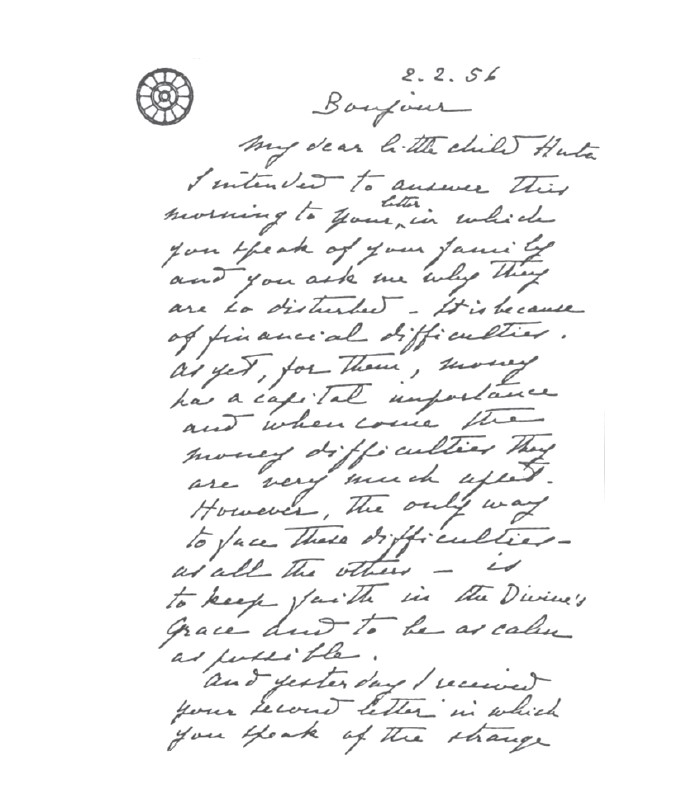 2. 2. 56
Bonjour
My dear little child Huta
I intended to answer this
morning to your letter in which
you speak of your family
and you ask me why they
are so disturbed - It is because
of financial difficulties.
As yet, for them, money
has a capital importance
and when come the
money difficulties they
are very much upset.
However, the only way
to face these difficulties -
as all the others - is
to keep faith in the Divine's
Grace and to be as calm
as possible.
And yesterday I received
your second letter in which
you speak of the strange